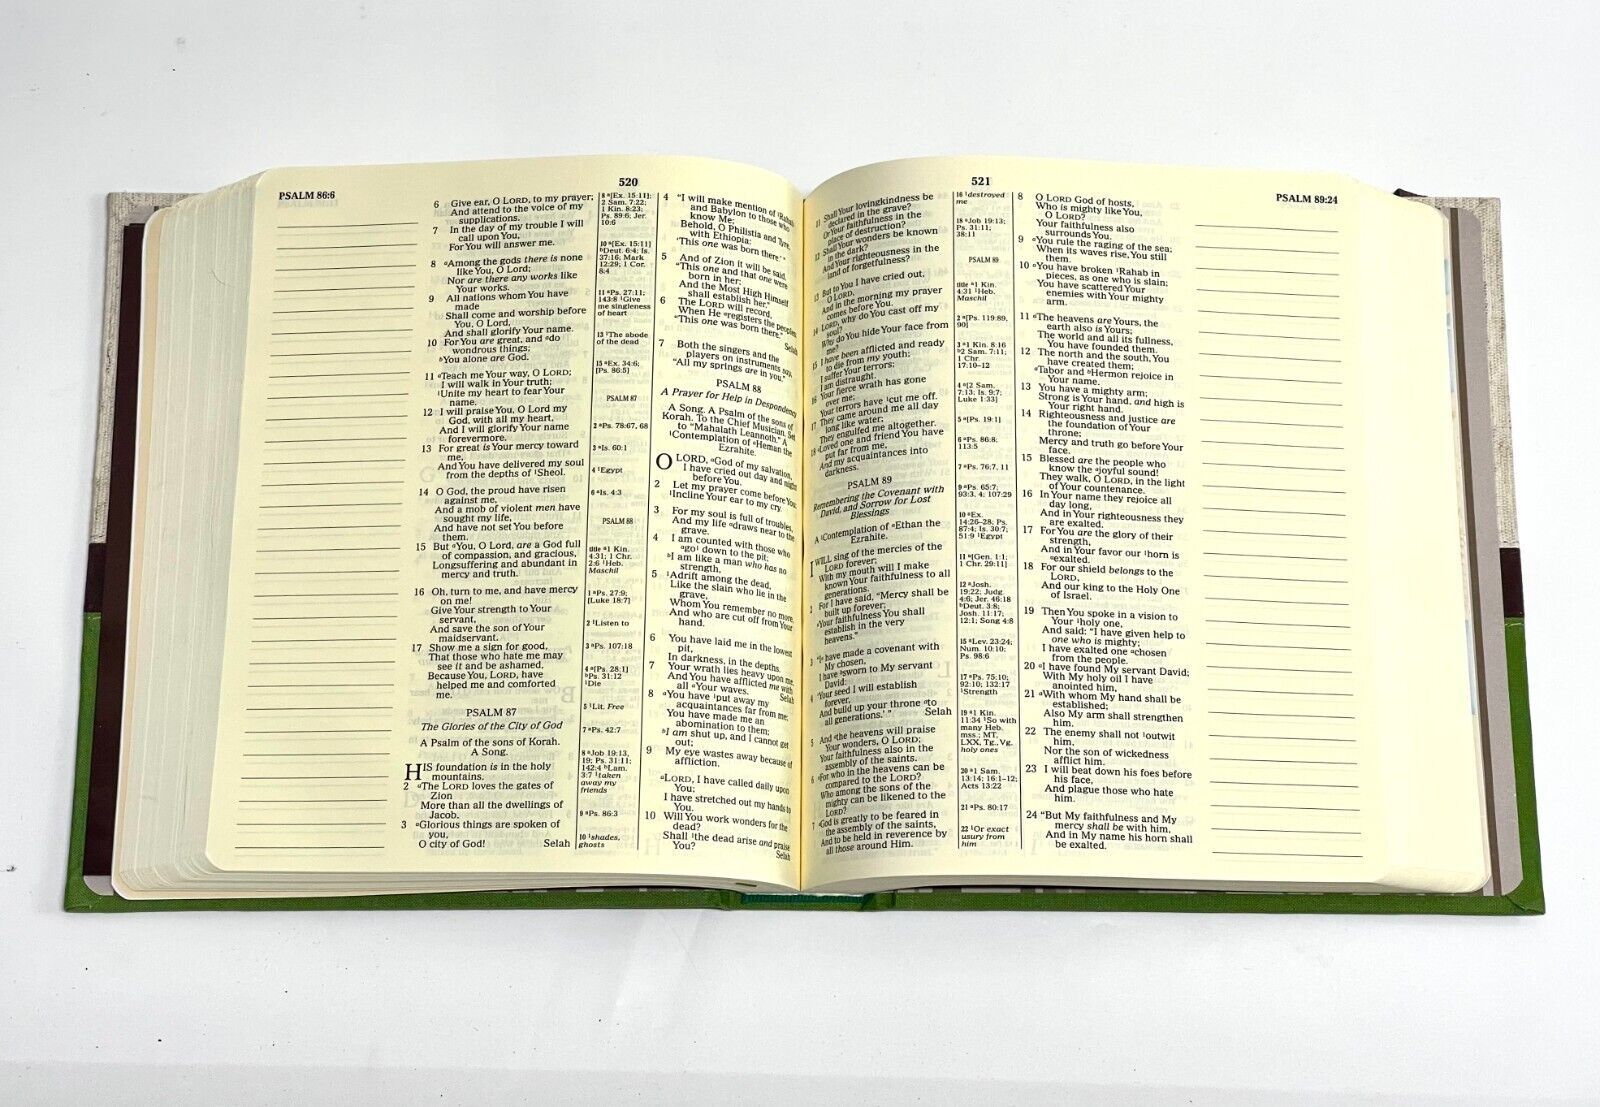 PSALM 86:6
520
6 Give ear, O LORD, to my prayer;
And attend to the voice of my
supplications.
7 In the day of my trouble I will
call upon You,
For You will answer me.
8 ªAmong the gods there is none
like You, O Lord;
Nor are there any works like
Your works.
9 All nations whom You have
made
Shall come and worship before
You, O Lord,
And shall glorify Your name.
10 For You are great, and ªdo
wondrous things;
ᵇYou alone are God.
11 ªTeach me Your way, O LORD;
I will walk in Your truth;
¹Unite my heart to fear Your
name.
12 I will praise You, O Lord my
God, with all my heart,
And I will glorify Your name
forevermore.
13 For great is Your mercy toward
me,
And You have delivered my soul
from the depths of ¹Sheol.
14 O God, the proud have risen
against me,
And a mob of violent men have
sought my life,
And have not set You before
them.
15 But ªYou, O Lord, are a God full
of compassion, and gracious,
Longsuffering and abundant in
mercy and truth.
16 Oh, turn to me, and have mercy
on me!
Give Your strength to Your
servant,
And save the son of Your
maidservant.
17 Show me a sign for good,
That those who hate me may
see it and be ashamed,
Because You, LORD, have
helped me and comforted
me.
PSALM 87
The Glories of the City of God
A Psalm of the sons of Korah.
A Song.
HIS foundation is in the holy
mountains.
2 ªThe LORD loves the gates of
Zion
More than all the dwellings of
Jacob.
3 ªGlorious things are spoken of
you,
O city of God! Selah
8 ª[Ex. 15:11];
2 Sam. 7:22;
1 Kin. 8:23;
Ps. 89:6; Jer.
10:6
10 ª[Ex. 15:11]
ᵇDeut. 6:4; Is.
37:16; Mark
12:29; 1 Cor.
8:4
11 ªPs. 27:11;
143:8 ¹Give
me singleness
of heart
13 ¹The abode
of the dead
15 ªEx. 34:6;
[Ps. 86:5]
PSALM 87
2 ªPs. 78:67, 68
3 ªIs. 60:1
4 ¹Egypt
6 ªIs. 4:3
PSALM 88
title ª1 Kin.
4:31; 1 Chr.
2:6 ¹Heb.
Maschil
1 ªPs. 27:9;
[Luke 18:7]
2 ¹Listen to
3 ªPs. 107:18
4 ª[Ps. 28:1]
ᵇPs. 31:12
¹Die
5 ¹Lit. Free
7 ªPs. 42:7
8 ªJob 19:13,
19; Ps. 31:11;
142:4 ᵇLam.
3:7 ¹taken
away my
friends
9 ªPs. 86:3
10 ¹shades,
ghosts
4 "I will make mention of ¹Rahab
and Babylon to those who
know Me;
Behold, O Philistia and Tyre,
with Ethiopia:
'This one was born there.' "
5 And of Zion it will be said,
"This one and that one were
born in her;
And the Most High Himself
shall establish her."
6 The LORD will record,
When He ªregisters the peoples:
"This one was born there." Selah
7 Both the singers and the
players on instruments say,
"All my springs are in you."
PSALM 88
A Prayer for Help in Despondency
A Song. A Psalm of the sons of
Korah. To the Chief Musician. Set
to "Mahalath Leannoth." A
¹Contemplation of ªHeman the
Ezrahite.
O LORD, ªGod of my salvation,
I have cried out day and night
before You.
2 Let my prayer come before You;
¹Incline Your ear to my cry.
3 For my soul is full of troubles,
And my life ªdraws near to the
grave.
4 I am counted with those who
ªgo¹ down to the pit;
ᵇI am like a man who has no
strength,
5 ¹Adrift among the dead,
Like the slain who lie in the
grave,
Whom You remember no more,
And who are cut off from Your
hand.
6 You have laid me in the lowest
pit,
In darkness, in the depths.
7 Your wrath lies heavy upon me,
And You have afflicted me with
all ªYour waves. Selah
8 ªYou have ¹put away my
acquaintances far from me;
You have made me an
abomination to them;
ᵇI am shut up, and I cannot get
out;
9 My eye wastes away because of
affliction.
ªLORD, I have called daily upon
You;
I have stretched out my hands to
You.
10 Will You work wonders for the
dead?
Shall ¹the dead arise and praise
You? Selah
521
PSALM 89:24
11 Shall Your lovingkindness be
declared in the grave?
Or Your faithfulness in the
place of destruction?
12 Shall Your wonders be known
in the dark?
And Your righteousness in the
land of forgetfulness?
13 But to You I have cried out,
O LORD,
And in the morning my prayer
comes before You.
14 LORD, why do You cast off my
soul?
Why do You hide Your face from
me?
15 I have been afflicted and ready
to die from my youth;
I suffer Your terrors;
I am distraught.
16 Your fierce wrath has gone
over me;
Your terrors have ¹cut me off.
17 They came around me all day
long like water;
They engulfed me altogether.
18 ªLoved one and friend You have
put far from me,
And my acquaintances into
darkness.
PSALM 89
Remembering the Covenant with
David, and Sorrow for Lost
Blessings
A ¹Contemplation of ªEthan the
Ezrahite.
I WILL sing of the mercies of the
LORD forever;
With my mouth will I make
known Your faithfulness to all
generations.
For I have said, "Mercy shall be
built up forever;
ªYour faithfulness You shall
establish in the very
heavens."
3 "I ªhave made a covenant with
My chosen,
I have ᵇsworn to My servant
David:
4 'Your seed I will establish
forever,
And build up your throne ªto
all generations.' " Selah
5 And ªthe heavens will praise
Your wonders, O LORD;
Your faithfulness also in the
assembly of the saints.
6 ªFor who in the heavens can be
compared to the LORD?
Who among the sons of the
mighty can be likened to the
LORD?
7 ªGod is greatly to be feared in
the assembly of the saints,
And to be held in reverence by
all those around Him.
16 ¹destroyed
me
18 ªJob 19:13;
Ps. 31:11;
38:11
PSALM 89
title ª1 Kin.
4:31 ¹Heb.
Maschil
2 ª[Ps. 119:89,
90]
3 ª1 Kin. 8:16
ᵇ2 Sam. 7:11;
1 Chr.
17:10–12
4 ª[2 Sam.
7:13; Is. 9:7;
Luke 1:33]
5 ª[Ps. 19:1]
6 ªPs. 86:8;
113:5
7 ªPs. 76:7, 11
9 ªPs. 65:7;
93:3, 4; 107:29
10 ªEx.
14:26–28; Ps.
87:4; Is. 30:7;
51:9 ¹Egypt
11 ª[Gen. 1:1;
1 Chr. 29:11]
12 ªJosh.
19:22; Judg.
4:6; Jer. 46:18
ᵇDeut. 3:8;
Josh. 11:17;
12:1; Song 4:8
15 ªLev. 23:24;
Num. 10:10;
Ps. 98:6
17 ªPs. 75:10;
92:10; 132:17
¹Strength
19 ª1 Kin.
11:34 ¹So with
many Heb.
mss.; MT,
LXX, Tg., Vg.
holy ones
20 ª1 Sam.
13:14; 16:1–12;
Acts 13:22
21 ªPs. 80:17
22 ¹Or exact
usury from
him
8 O LORD God of hosts,
Who is mighty like You,
O LORD?
Your faithfulness also
surrounds You.
9 ªYou rule the raging of the sea;
When its waves rise, You still
them.
10 ªYou have broken ¹Rahab in
pieces, as one who is slain;
You have scattered Your
enemies with Your mighty
arm.
11 ªThe heavens are Yours, the
earth also is Yours;
The world and all its fullness,
You have founded them.
12 The north and the south, You
have created them;
ªTabor and ᵇHermon rejoice in
Your name.
13 You have a mighty arm;
Strong is Your hand, and high is
Your right hand.
14 Righteousness and justice are
the foundation of Your
throne;
Mercy and truth go before Your
face.
15 Blessed are the people who
know the ªjoyful sound!
They walk, O LORD, in the light
of Your countenance.
16 In Your name they rejoice all
day long,
And in Your righteousness they
are exalted.
17 For You are the glory of their
strength,
And in Your favor our ¹horn is
ªexalted.
18 For our shield belongs to the
LORD,
And our king to the Holy One
of Israel.
19 Then You spoke in a vision to
Your ¹holy one,
And said: "I have given help to
one who is mighty;
I have exalted one ªchosen
from the people.
20 ªI have found My servant David;
With My holy oil I have
anointed him,
21 ªWith whom My hand shall be
established;
Also My arm shall strengthen
him.
22 The enemy shall not ¹outwit
him,
Nor the son of wickedness
afflict him.
23 I will beat down his foes before
his face,
And plague those who hate
him.
24 "But My faithfulness and My
mercy shall be with him,
And in My name his horn shall
be exalted.